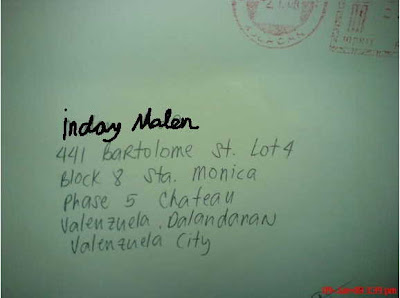 Inday Malen
441 Bartolome St. Lot 4
Block 8 Sta. Monica
Phase 5 Chateau
Valenzuela, Dalandanan
Valenzuela City